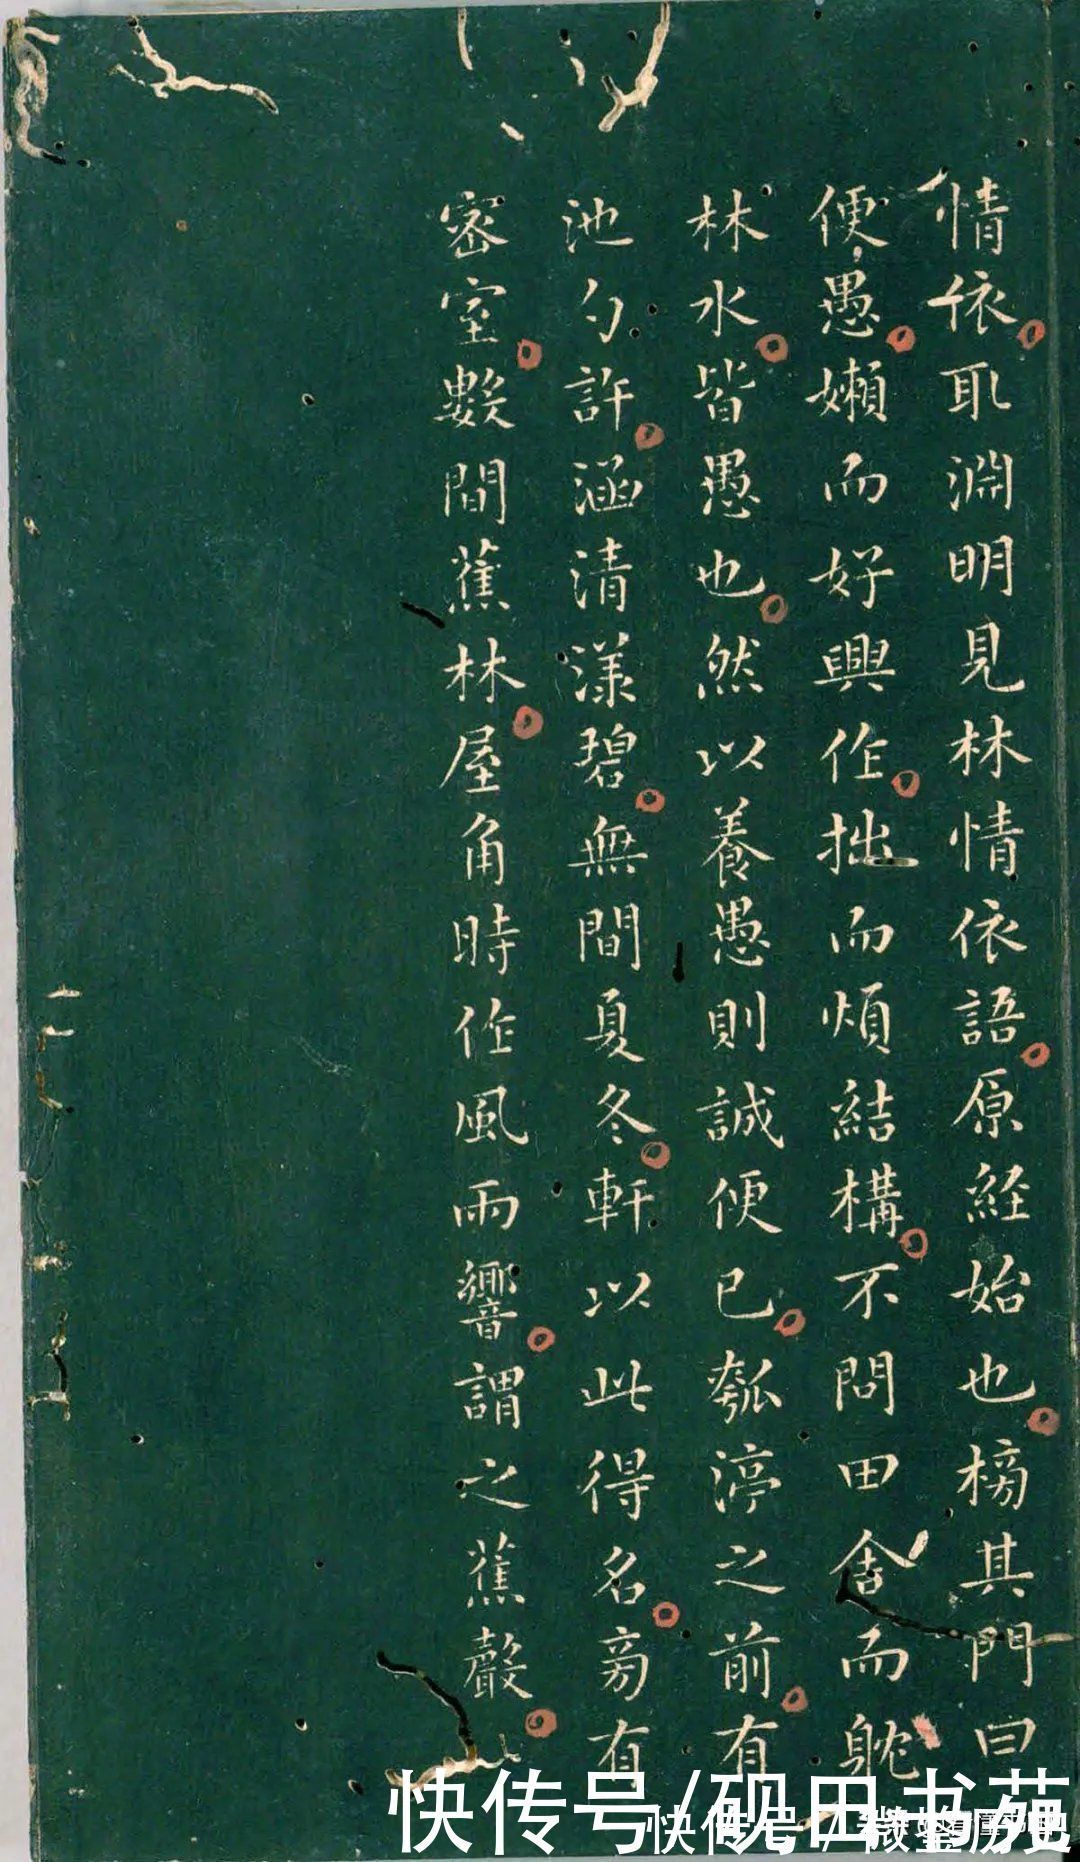 情依耴淵明見林情依語原經始也榜其門曰
便愚嬾而好興作拙而煩結構不問田舍而躭
林水皆愚也然以養愚愚則誠便已瓠渟之前有
池勺許涵清漾碧無間夏冬軒以此得名旁有
密室數間蕉林屋角時作風雨響謂之蕉聲
快传号/砚田书苑
快传号/